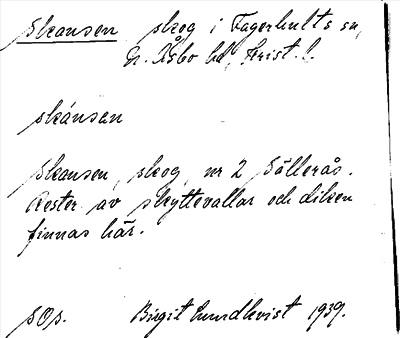 Skansen skog i Fagerhults sn,
N. Åsbo hd, Krist. l.
skánsan
Skansen, skog, nr 2 Sällerås.
Rester av skyttevallar och diken
finnas här.
sOp. Birgit Lundkvist 1939.